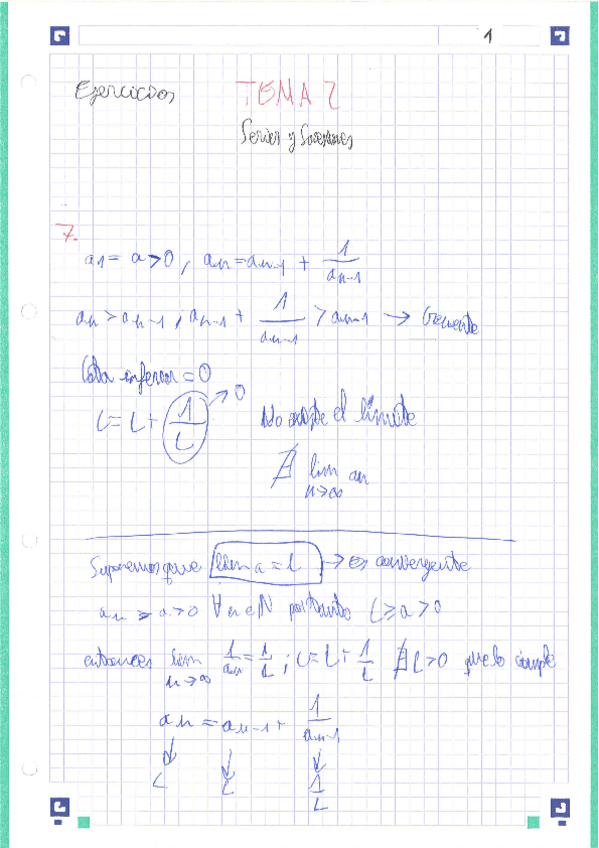 1
Ejercicios TEMA 2
Series y Sucesiones
7.
a1 = a > 0, an = an-1 + 1/an-1
an > an-1 ; an-1 + 1/an-1 > an-1 → Creciente
Cota inferior = 0
L = L + 1/L → 0 No existe el límite
∄ lim an n→∞
Suponemos que lim a = L → es convergente
an ≥ a > 0 ∀n∈N por tanto L ≥ a > 0
entonces lim n→∞ 1/an = 1/L ; L = L + 1/L ∄ L > 0 que lo cumple
an = an-1 + 1/an-1
↓ ↓ ↓
L L 1/L